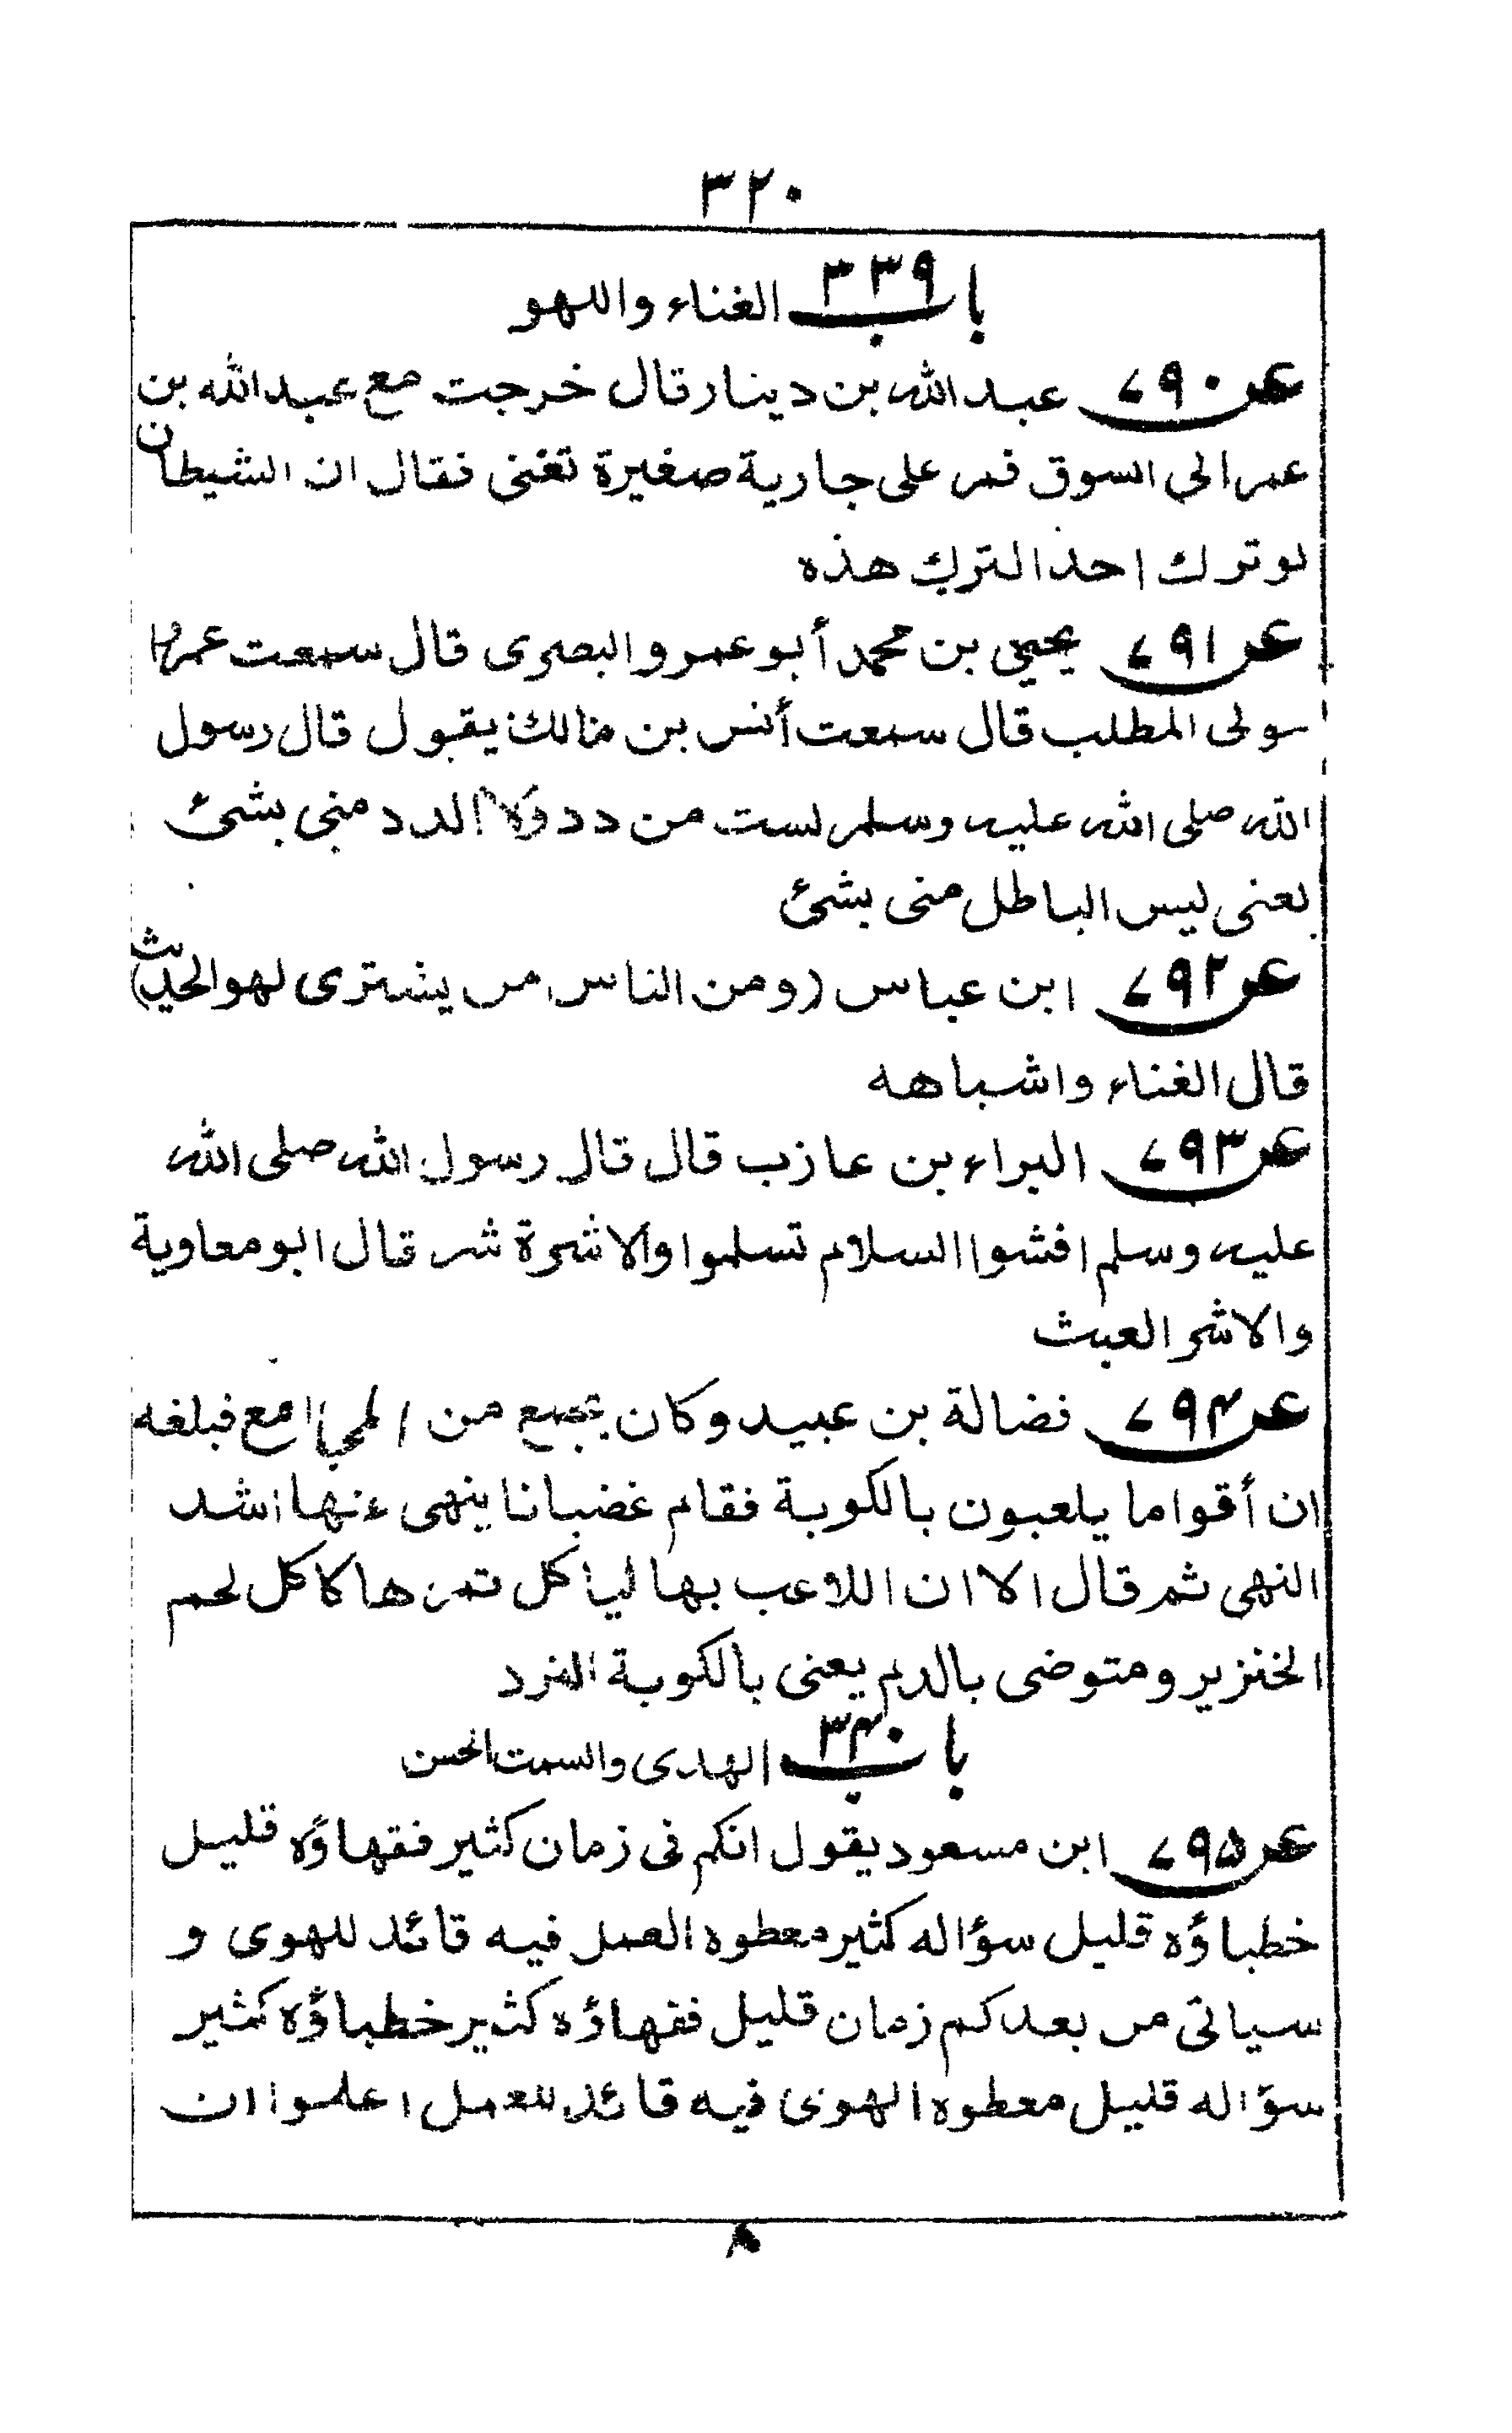 ٣٢٠
باب ٣٣٩ الغناء واللهو
عن ٧٩٠ عبد الله بن دينار قال خرجت مع عبد الله بن
عمر الى السوق فمر على جارية صغيرة تغنى فقال ان الشيطان
لو ترك احدا لترك هذه
عن ٧٩١ يحيى بن محمد أبو عمرو البصرى قال سمعت عمرا
مولى المطلب قال سمعت أنس بن مالك يقول قال رسول
الله صلى الله عليه وسلم لست من دد ولا الدد منى بشئ
يعنى ليس الباطل منى بشئ
عن ٧٩٢ ابن عباس (ومن الناس من يشترى لهو الحديث)
قال الغناء واشباهه
عن ٧٩٣ البراء بن عازب قال قال رسول الله صلى الله
عليه وسلم افشوا السلام تسلموا والاشرة شر قال ابو معاوية
والاشر العبث
عن ٧٩٤ فضالة بن عبيد وكان بجمع من المجامع فبلغه
ان أقواما يلعبون بالكوبة فقام غضبانا ينهى عنها اشد
النهى ثم قال الا ان اللاعب بها ليأكل ثمرها كاكل لحم
الخنزير ومتوضى بالدم يعنى بالكوبة النرد
باب ٣٤٠ الهدى والسمت الحسن
عن ٧٩٥ ابن مسعود يقول انكم فى زمان كثير فقهاؤه قليل
خطباؤه قليل سؤاله كثير معطوه العمل فيه قائد للهوى و
سياتى من بعدكم زمان قليل فقهاؤه كثير خطباؤه كثير
سؤاله قليل معطوه الهوى فيه قائد للعمل اعلموا ان